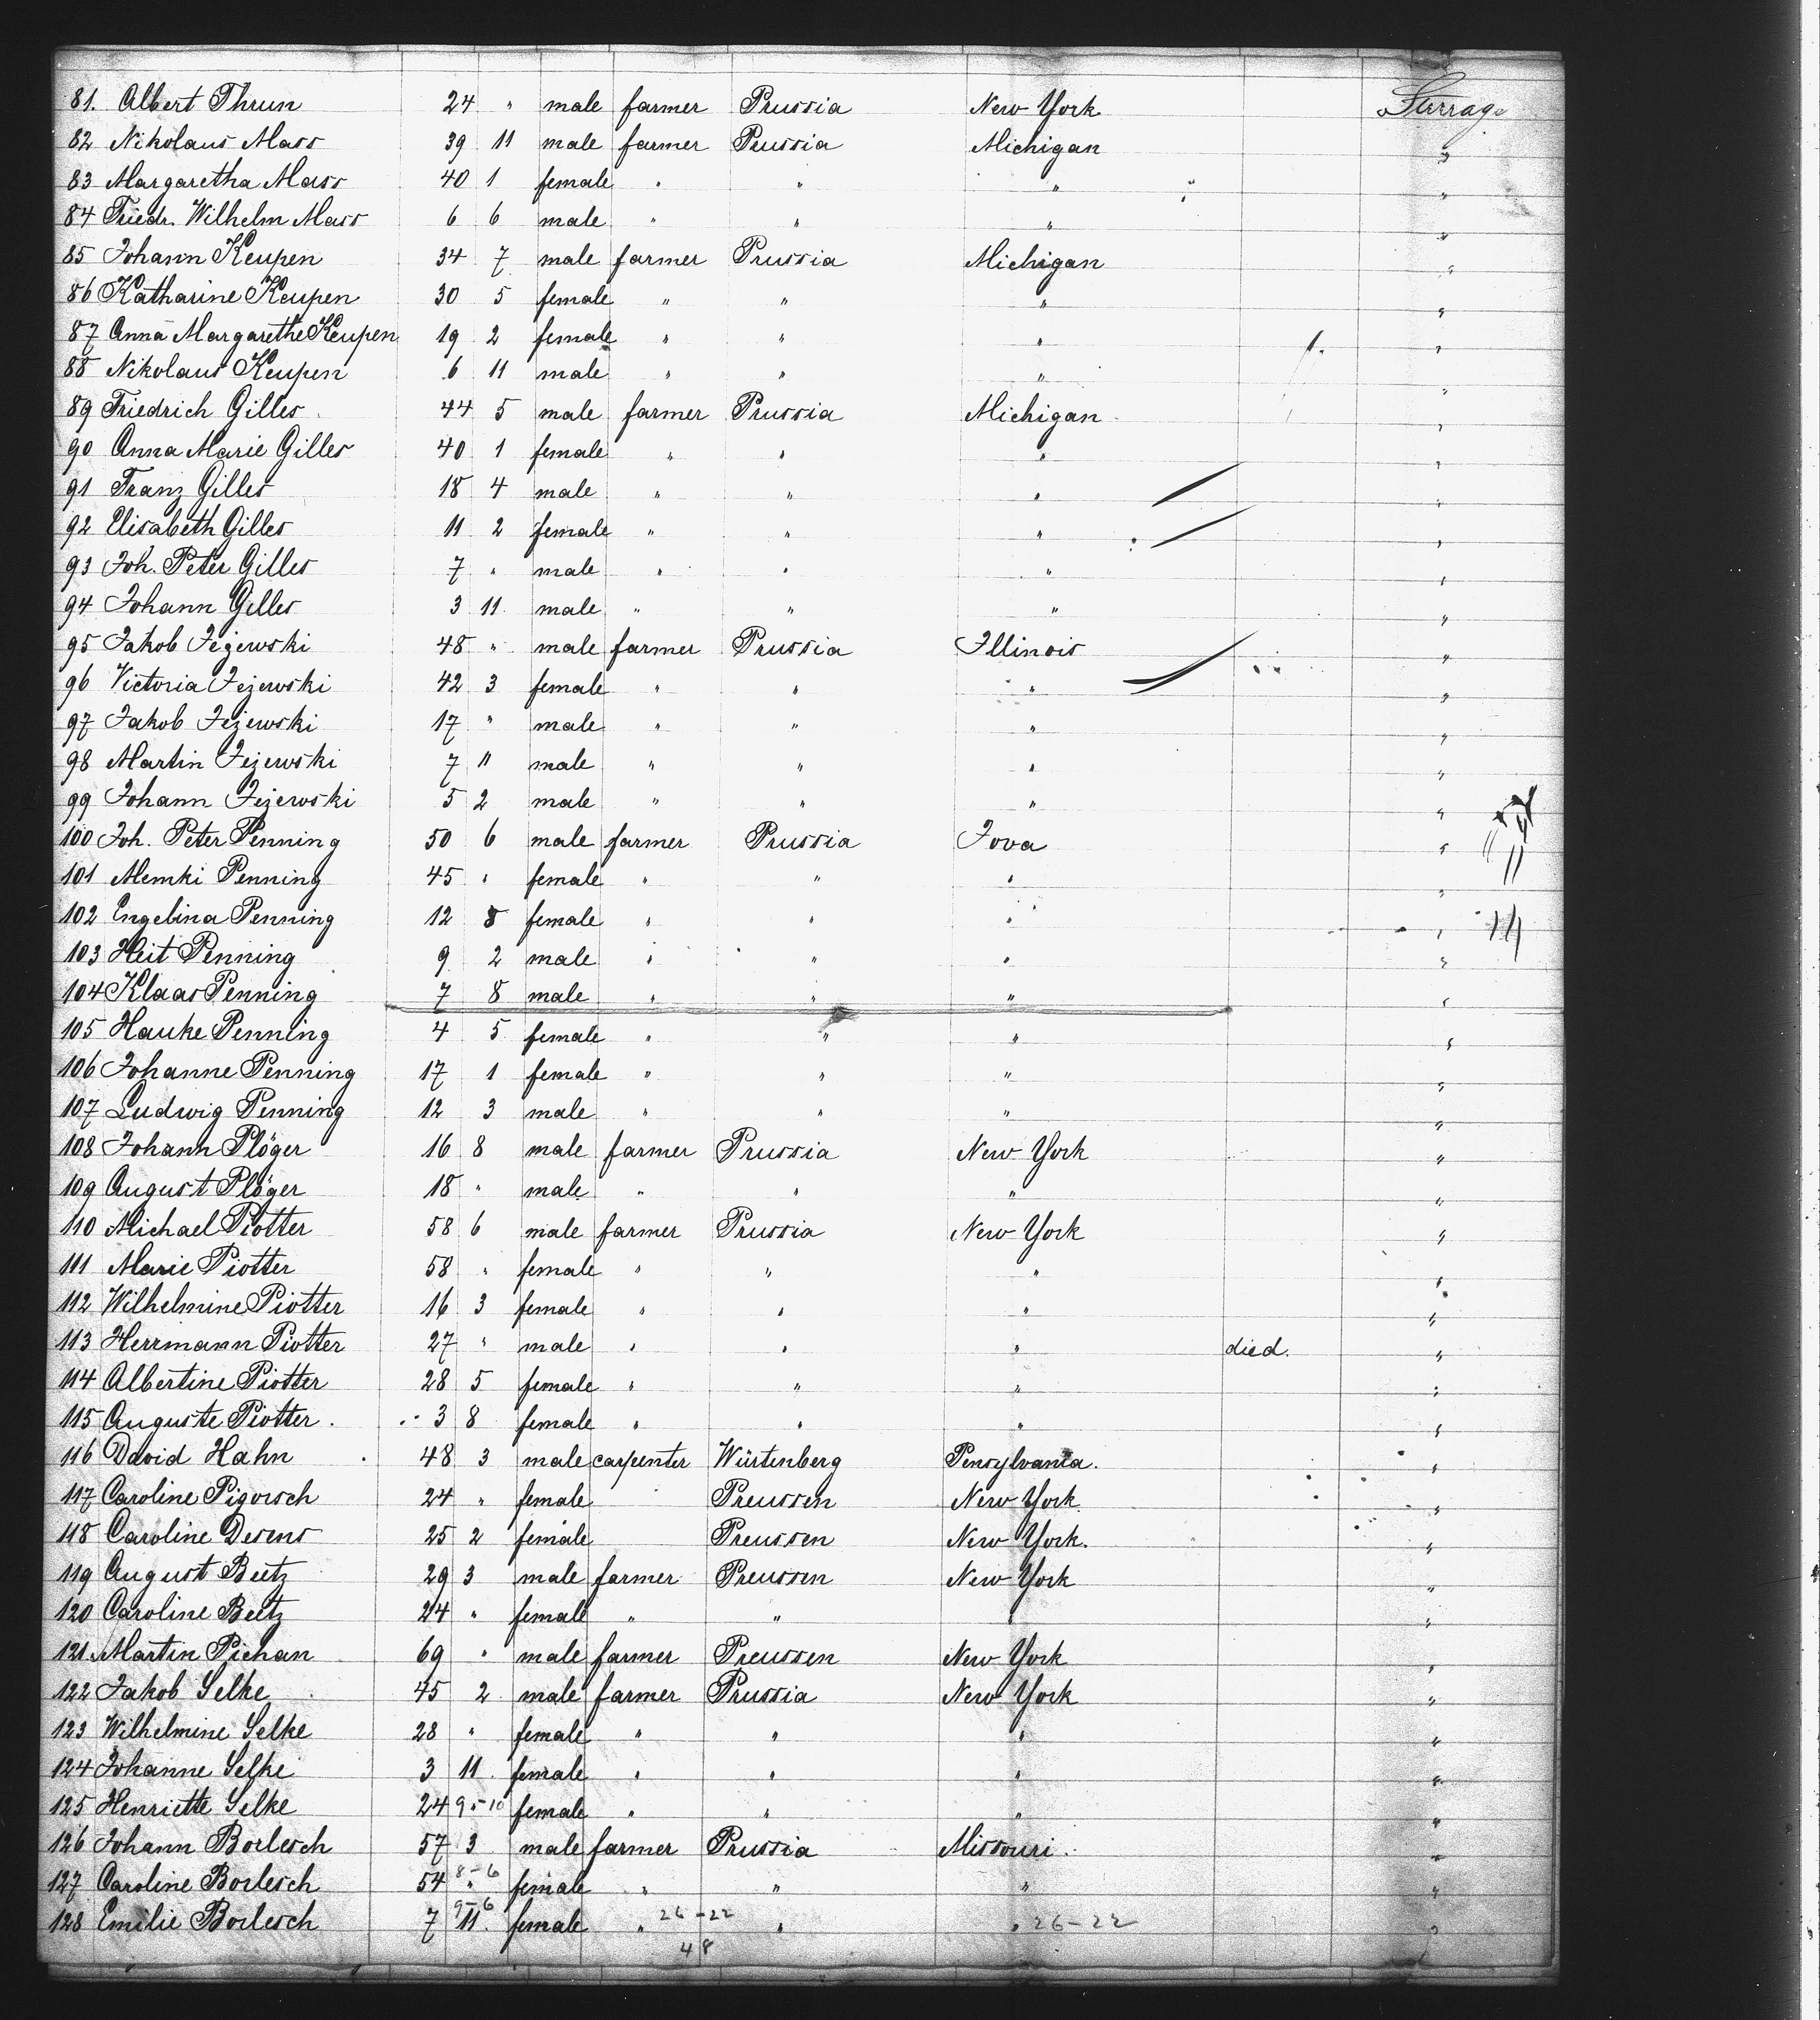 81. Albert Thrun 24 " male farmer Prussia New York Steerage
82 Nikolaus Mass 39 11 male farmer Prussia Michigan "
83 Margaretha Mass 40 1 female " " " "
84 Friedr. Wilhelm Mass 6 6 male " " " "
85 Johann Keupen 34 7 male farmer Prussia Michigan "
86 Katharine Keupen 30 5 female " " " "
87 Anna Margarethe Keupen 19 2 female " " " "
88 Nikolaus Keupen 6 11 male " " " "
89 Friedrich Gilles 44 5 male farmer Prussia Michigan "
90 Anna Marie Gilles 40 1 female " " " "
91 Franz Gilles 18 4 male " " " "
92 Elisabeth Gilles 11 2 female " " " "
93 Joh. Peter Gilles 7 " male " " " "
94 Johann Gilles 3 11 male " " " "
95 Jakob Jezewski 48 " male farmer Prussia Illinois "
96 Victoria Jezewski 42 3 female " " " "
97 Jakob Jezewski 17 " male " " " "
98 Martin Jezewski 7 " male " " " "
99 Johann Jezewski 5 2 male " " " "
100 Joh. Peter Penning 50 6 male farmer Prussia Iova "
101 Memki Penning 45 " female " " " "
102 Engelina Penning 12 8 female " " " "
103 Heit Penning 9 2 male " " " "
104 Klaas Penning 7 8 male " " " "
105 Hauke Penning 4 5 female " " " "
106 Johanne Penning 17 1 female " " " "
107 Ludwig Penning 12 3 male " " " "
108 Johann Plöger 16 8 male farmer Prussia New York "
109 August Plöger 18 " male " " " "
110 Michael Piotter 58 6 male farmer Prussia New York "
111 Marie Piotter 58 " female " " " "
112 Wilhelmine Piotter 16 3 female " " " "
113 Herrmann Piotter 27 " male " " " died. "
114 Albertine Piotter 28 5 female " " " "
115 Auguste Piotter 3 8 female " " " "
116 David Hahn 48 3 male carpenter Würtenberg Pensylvania. "
117 Caroline Pigorsch 24 " female Preussen New York "
118 Caroline Desens 25 2 female Preussen New York. "
119 August Beetz 29 3 male farmer Preussen New York "
120 Caroline Beetz 24 " female " " " "
121. Martin Pichan 69 " male farmer Preussen New York "
122 Jakob Selke 45 2 male farmer Prussia New York "
123 Wilhelmine Selke 28 " female " " " "
124 Johanne Selke 3 11 female " " " "
125 Henriette Selke 24 9-10 female " " " "
126 Johann Borlesch 57 3 male farmer Prussia Missouri "
127 Caroline Borlesch 54 " 8-6 female " " " "
128 Emilie Borlesch 7 11 9-6 female " 26-22 " " 26-22 "
48